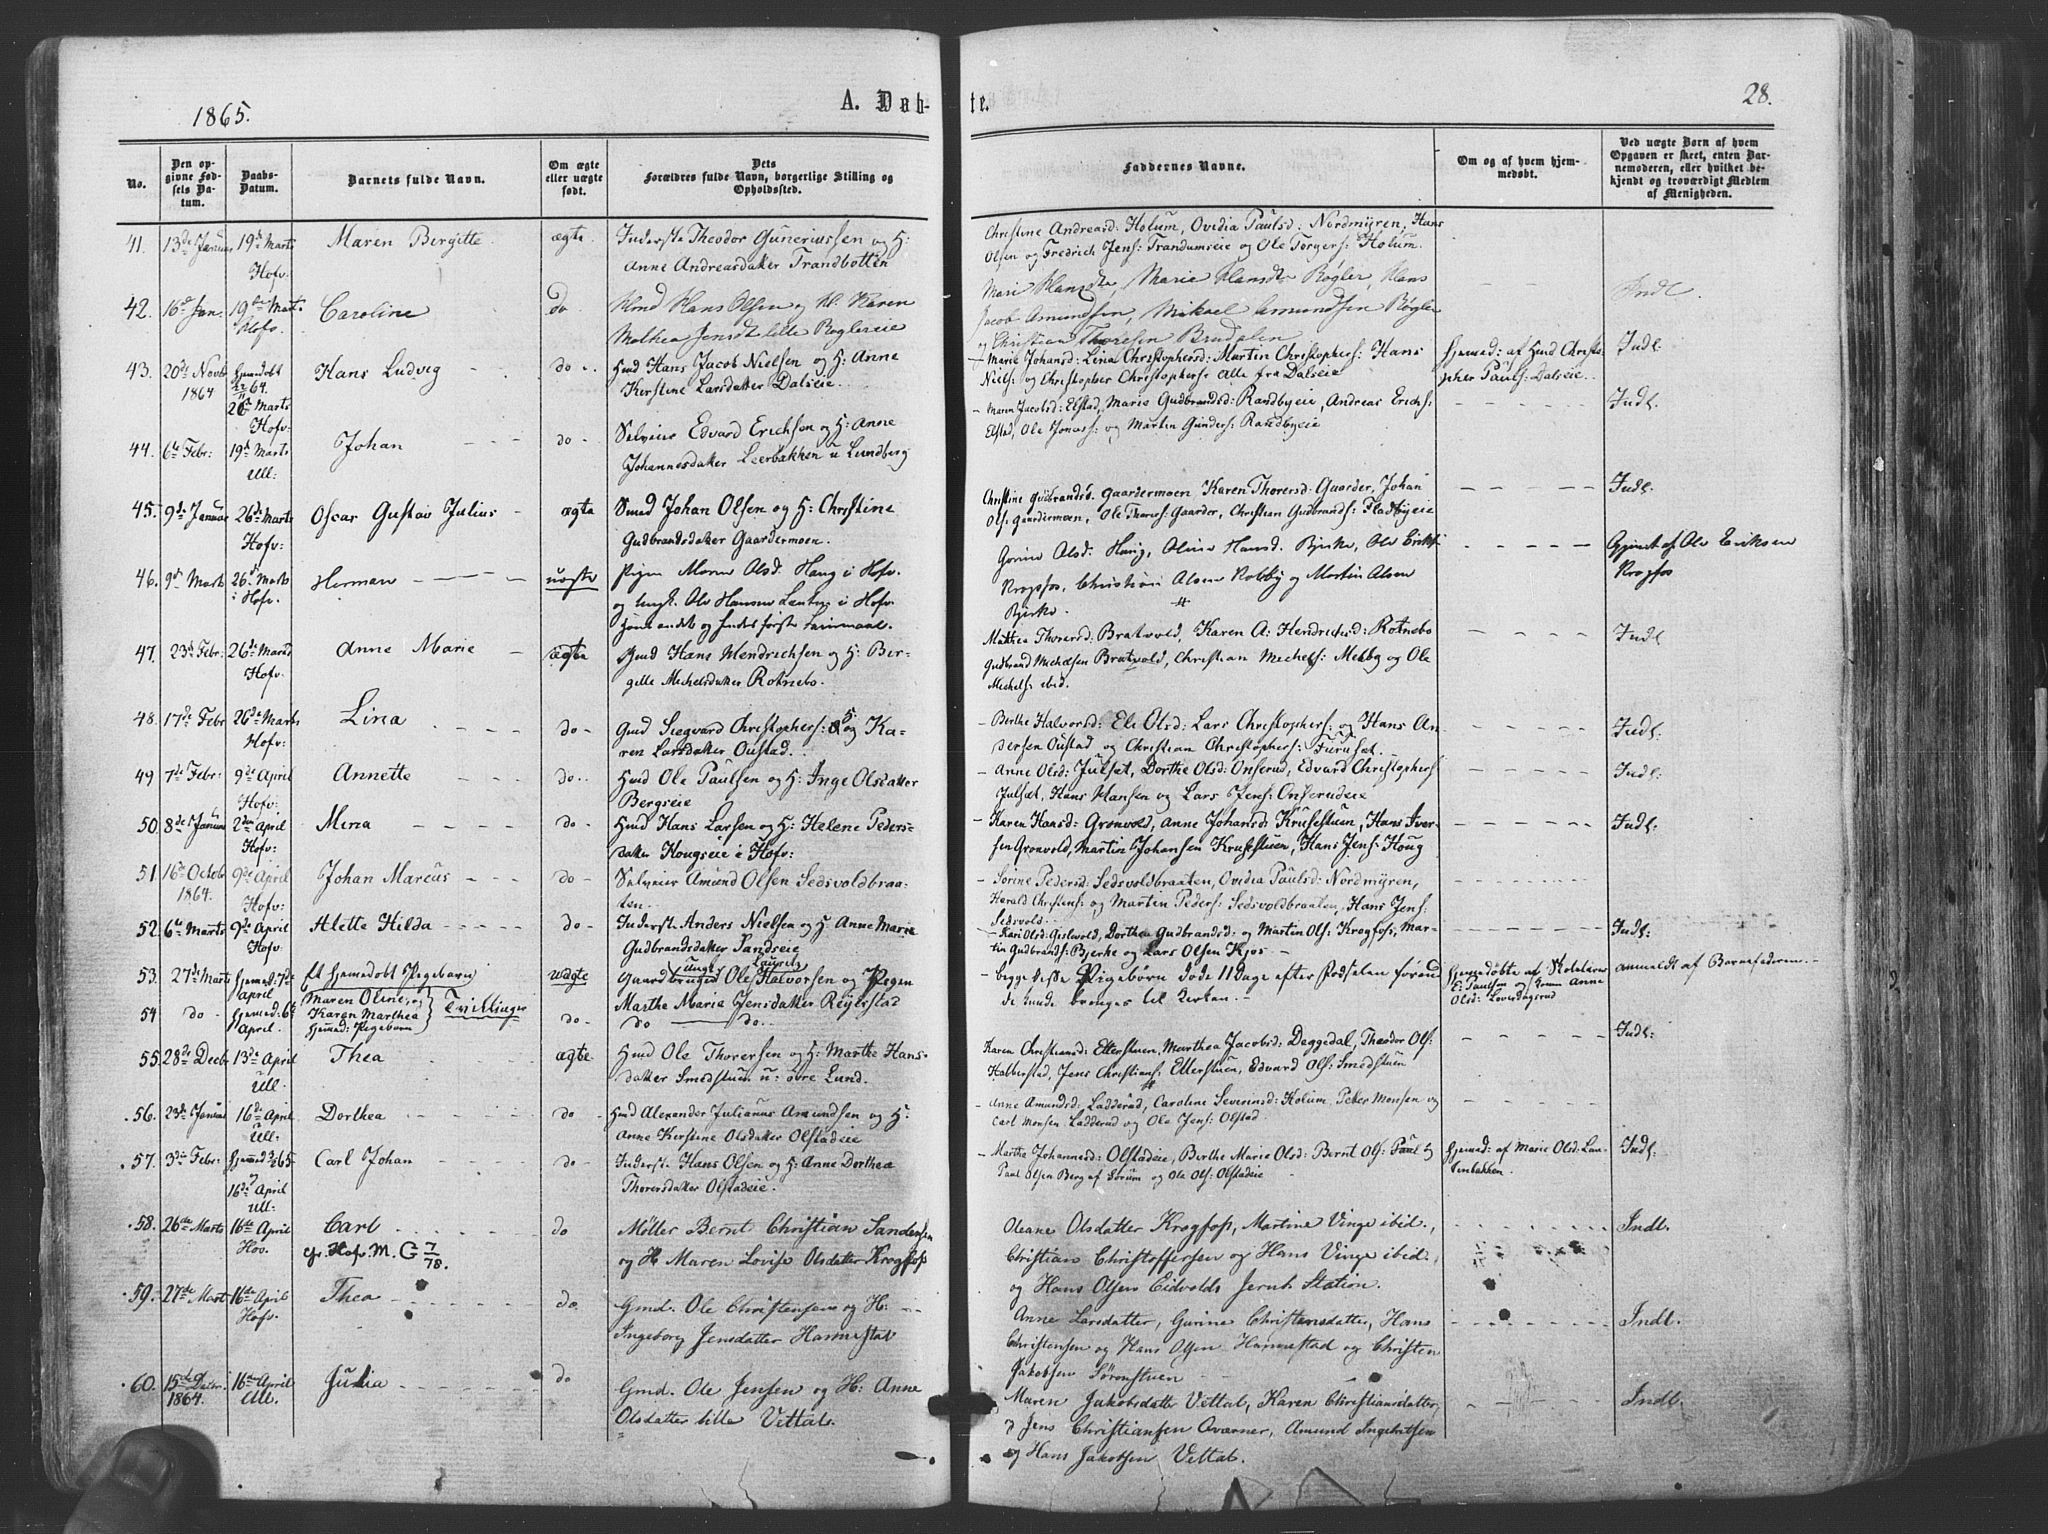 1865.
A. Døb-
te.
28.
No.
Den op-
givne Fød-
sels Da-
tum.
Daabs-
Datum.
Barnets fulde Navn.
Om ægte
eller uægte
født.
Dets
Forældres fulde Navn, borgerlige Stilling og
Opholdssted.
Faddernes Navne.
Om og af hvem hjem-
medøbt.
Ved uægte Børn af hvem
Opgaven er skeet, enten Bar-
nemoderen, eller hvilket be-
kjendt og troværdigt Medlem
af Menigheden.
41. 13de Januar 19de Marts Maren Bergitte ægte Inderste Theodor Guneriussen og H: Christine Andreasd: Holum, Ovidia Paulsd: Nordmyren, Hans
Hofv: Anne Andreasdatter Trandbotten Olsen og Fredrich Jens: Trandumseie og Ole Torgers: Holum.
42. 16de Jan. 19de Marts Caroline do Hmd Hans Olsen og H. Karen Mari Hansdtr Marie Hansdtr Røgler, Hans Indl.
Hofv. Mathea Jensdt lille Røglereie Jacob Amundsen, Mikael Amundsen Røgler
og Christian Thoresen Brudalen
43. 20de Novb Hjemdøbt Hans Ludvig do Hmd Hans Jacob Nielsen og H: Anne Marie Johansd: Lina Christophersd: Martin Christophers: Hans Hjemmed: af Hmd Christo- Indl.
1864 64. Kerstine Larsdatter Dalseie Niels: og Christopher Christophers: alle fra Dalseie pher Pauls: Dalseie.
26de Marts
Hofv:
44. 6te Febr: 19de Marts Johan do Selveier Edvard Erichsen og H: Anne Maren Jacobsd: Elstad, Marie Gudbrandsd: Randbyeie, Andreas Erichs: Indl.
Ull: Johannesdatter Leerbakken u Lundberg Elstad, Ole Jonas: og Martin Gunders: Randbyeie
45. 9de Januar 26de Marts Oscar Gustav Julius ægte Smed Johan Olsen og H: Christine Christine Gudbrandsd: Gaardermoen, Karen Thorersd: Gaarder, Johan Indl:
Hofv: Gudbrandsdatter Gaardermoen. Ols: Gaardermoen, Ole Thorers: Gaarder, Christian Gudbrands: Fladbyeie
46. 9de Marts 26de Marts Herman uægte Pigen Maren Olsd. Haug i Hofv. Gorine Olsd. Haug, Oline Hansd. Bjerke, Ole Eriks: Opgivet af Ole Eriksen
i Hofv. og Ungk. Ole Hansen i Hofv. Krogfos, Christian Olsen Kobby og Martin Olsen Krogfos
hans andet og hendes første Leiermaal. Bjerke.
47. 23de Febr: 26de Marts Anne Marie ægte Gmd Hans Hendrichsen og H: Ber- Mathea Thorersd: Bratvold, Karen A: Hendrichsd: Rotnebo Indl
Hofv: gitte Michelsdatter Rotnebo. Gudbrand Michelsen Bratvold, Christian Michels: Melby og Ole
Michels: ibid.
48. 17de Febr 26de Marts Lina do Gmd Siegvard Christophers: og H: Ka- Berthe Halvorsd: Eli Olsd: Lars Christophers: og Hans An- Indl:
Hofv: ren Larsdatter Oustad. dersen Oustad og Christian Christophers: Furuset
49 7de Febr: 9de April Annette do Hmd Ole Paulsen og H: Inge Olsdatter Anne Olsd: Julsæt, Dorthe Olsd: Onserud, Edvard Christophers: Indl:
Hofv: Bergseie Julsæt, Hans Hansen og Lars Jens: Onserudeie
50. 8de Januar 2den April Mina do Hmd Hans Larsen og H: Helene Peders- Karen Hansd: Grønvold, Anne Johansd: Krusestuen, Hans Iver- Indl:
Hofv: datter Kongseie i Hofv: sen Grønvold, Martin Johansen Krusestuen, Hans Jens: Houg
51. 16de Octob 9de April Johan Marcus do Selveier Amund Olsen Sedsvoldbraa- Sorine Pedersd: Sedsvoldbraaten, Ovidia Paulsd: Nordmyren,
1864. Hofv: ten. Harald Christens: og Martin Peders: Sedsvoldbraaten, Hans Jens:
Sedsvold.
52. 6te Marts 9de April Alette Hilda do Inderst: Anders Nielsen og H Anne Marie Kari Olsd: Gislevold, Dorthea Gudbrandsd: og Martin Ols: Krogfos, Mar- Indl:
Hofv: Gudbrandsdatter Sandseie tin Gudbrands: Bjerke og Lars Olsen Kjos
53. 27de Marts Hjemmed: 1ste Et hjemmedøbt Pigebarn uægte Gaardbruger Ungk. Ole Lauritz Halvorsen og Pigen begge disse Pigebørn døde 11 Dage efter Fødselen førend Hjemmedøbte af Skolelærer anmeldt af Barnefaderen.
April Maren Oline, og Marthe Marie Jensdatter Reijerstad de kunde bringes til Kirken. E: Paulsen og Anne
54 do Hjemmed: 6te Karen Marthea Tvillinger do do do Olsd: Lovisdagsrud
April. hjemmed: Pigebarn
55. 28de Decb 13de April Thea ægte Hmd Ole Thorersen og H: Marthe Hans- Karen Christiansd: Etterstuen, Marthea Jacobsd: Deggedal, Theodor Ols: Indl:
Ull datter Smedstuen u: øvre Lund. Halberstad, Jens Christians: Etterstuen, Edvard Ols: Smedstuen
56. 23de Januar 16de April Dorthea do Hmd Alexander Julianus Amundsen og H: Anne Amundsd: Ladderud, Caroline Severinsd: Holum, Peter Monsen og
Ull: Anne Kerstine Olsdatter Olstadeie Carl Monsen Ladderud og Ole Jens: Olstad
57. 3die Febr: Hjemmed 65 Carl Johan do Inderst: Hans Olsen og H: Anne Dorthea Marthe Johannesd: Olstadeie, Berthe Marie Olsd: Bernt Ols: Hjemmed: af Marie Olsd: Lau- Indl:
16de April Thorersdatter Olstadeie. Paul Olsen Berg af Sørum og Ole Ols: Olstadeie tenbakken
Ull:
58. 26de Marts 16de April Carl do Møller Bernt Christian Sandersen Oleane Olsdatter Krogfoss, Martine Vinge ibid., Indl.
Hov. cfr. Hofv. M. G 7/78. og H Maren Lovise Olsdatter Krogfoss Christian Christoffersen og Hans Vinge ibid.
og Hans Olsen Eidvolds Jernb Station.
59. 27de Marts 16de April Thea do Gmd. Ole Christensen og H: Anne Larsdatter, Gurine Christensdatter, Hans Indl.
Hofv. Ingeborg Jensdatter Hammestad Christensen og Hans Olsen Hammestad og Christen
Jakobsen Sørenstuen
60. 15de Decbr. 16de April Julia do Gmd. Ole Jensen og H: Anne Maren Jakobsdatter Vettal, Karen Christiansdatter, Indl.
1864. Ull. Olsdatter lille Vettal. Jens Christiansen Overner, Amund Ingebretsen
og Hans Jakobsen Vettal.